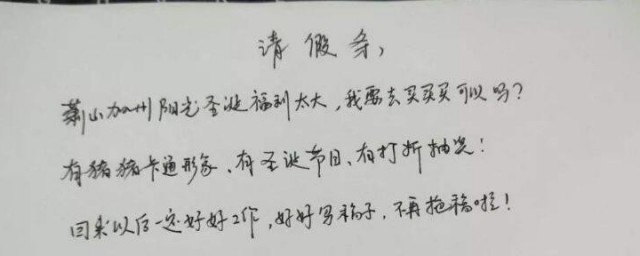 请假条,
萧山加州阳光圣诞福利太大,我要去买买买可以吗?
有猪猪卡通形象、有圣诞节目、有打折抽奖!
回来以后一定好好工作,好好写稿子,不再拖稿啦!